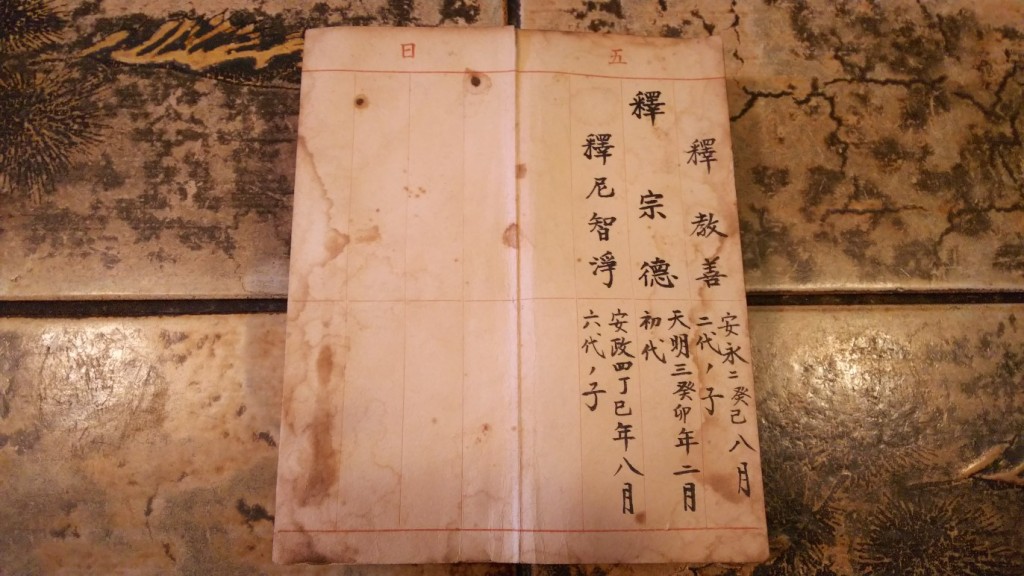 五日
釋教善
安永二癸巳八月
二代ノ子
釋宗德
天明三癸卯年二月
初代
釋尼智淨
安政四丁巳年八月
六代ノ子